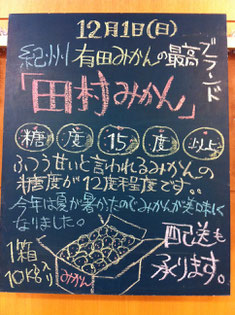 12月1日(日)
紀州 有田みかんの最高ブランド
「田村みかん」
糖度15度以上
ふつうせいと言われるみかんの
糖度が12度程度です。
今年は夏が暑かったのでみかんが美味しく
なりました。
1箱
10kg入り
みかん
配送も
承ります。